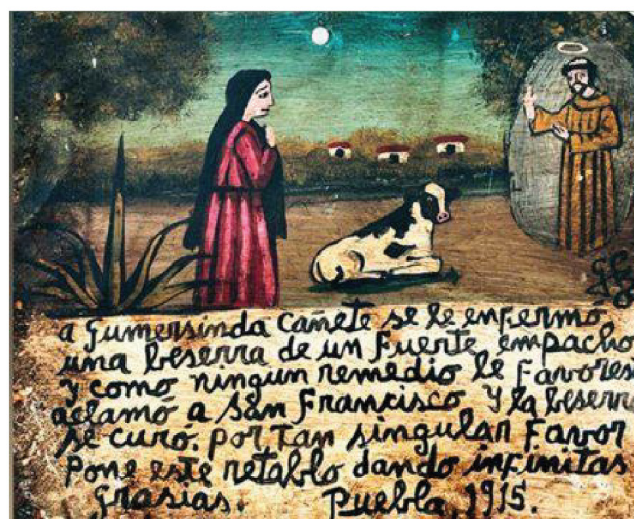 a Gumersinda Cañete se le enfermó
una beserra de un Fuerte empacho
y como ningun remedio le Favores
aclamó a San Francisco y la beserr
se curó. por Tan singular Favor
Pone este retablo dando infinitas
grasias. Puebla, 1915.